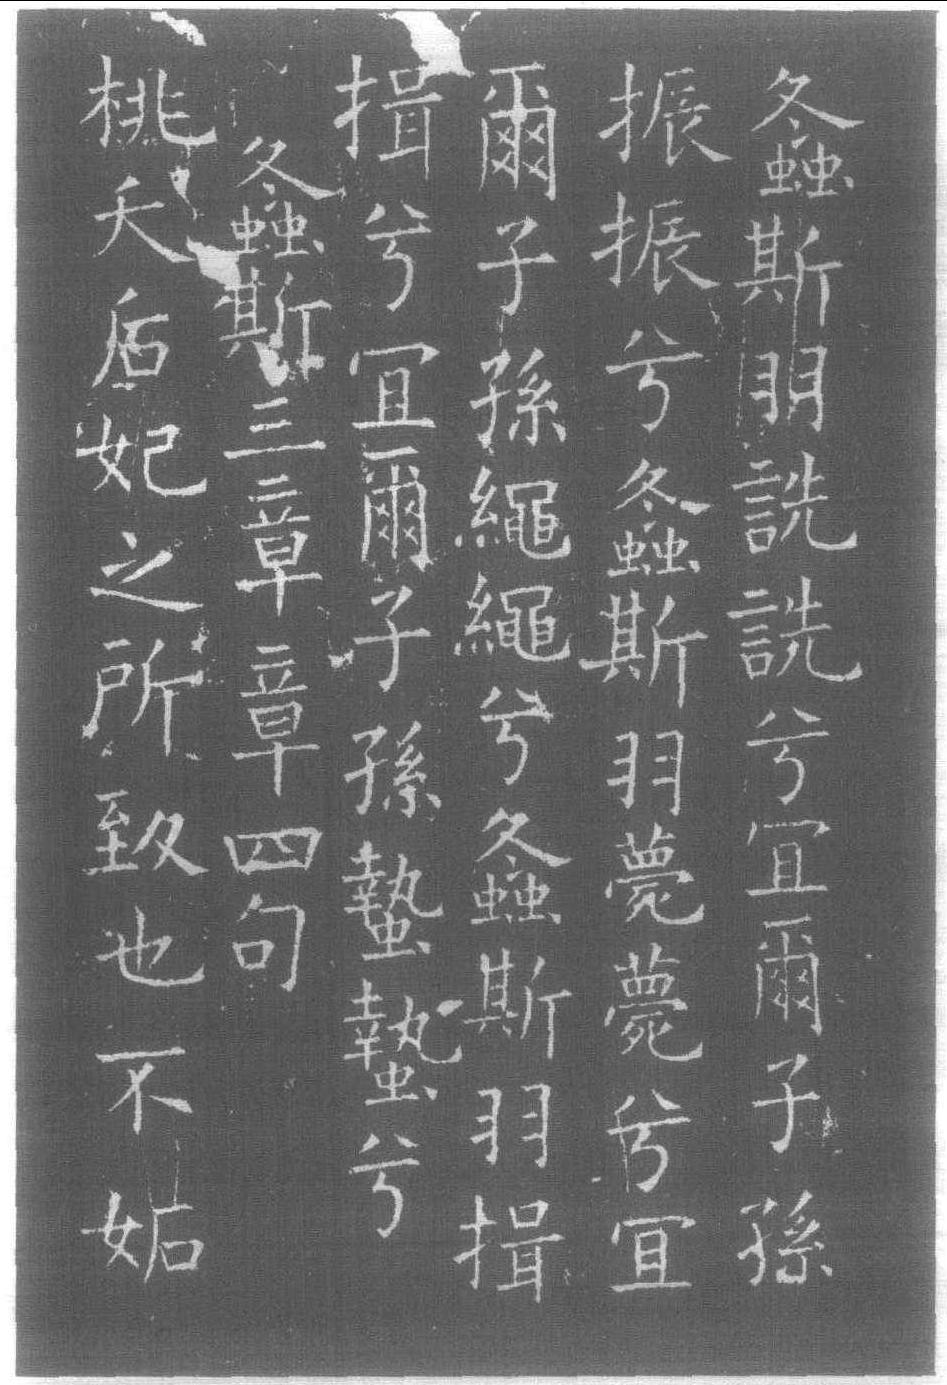 螽斯羽詵詵兮宜爾子孫
振振兮螽斯羽薨薨兮宜
爾子孫繩繩兮螽斯羽揖
揖兮宜爾子孫蟄蟄兮
螽斯三章章四句
桃夭后妃之所致也不妬